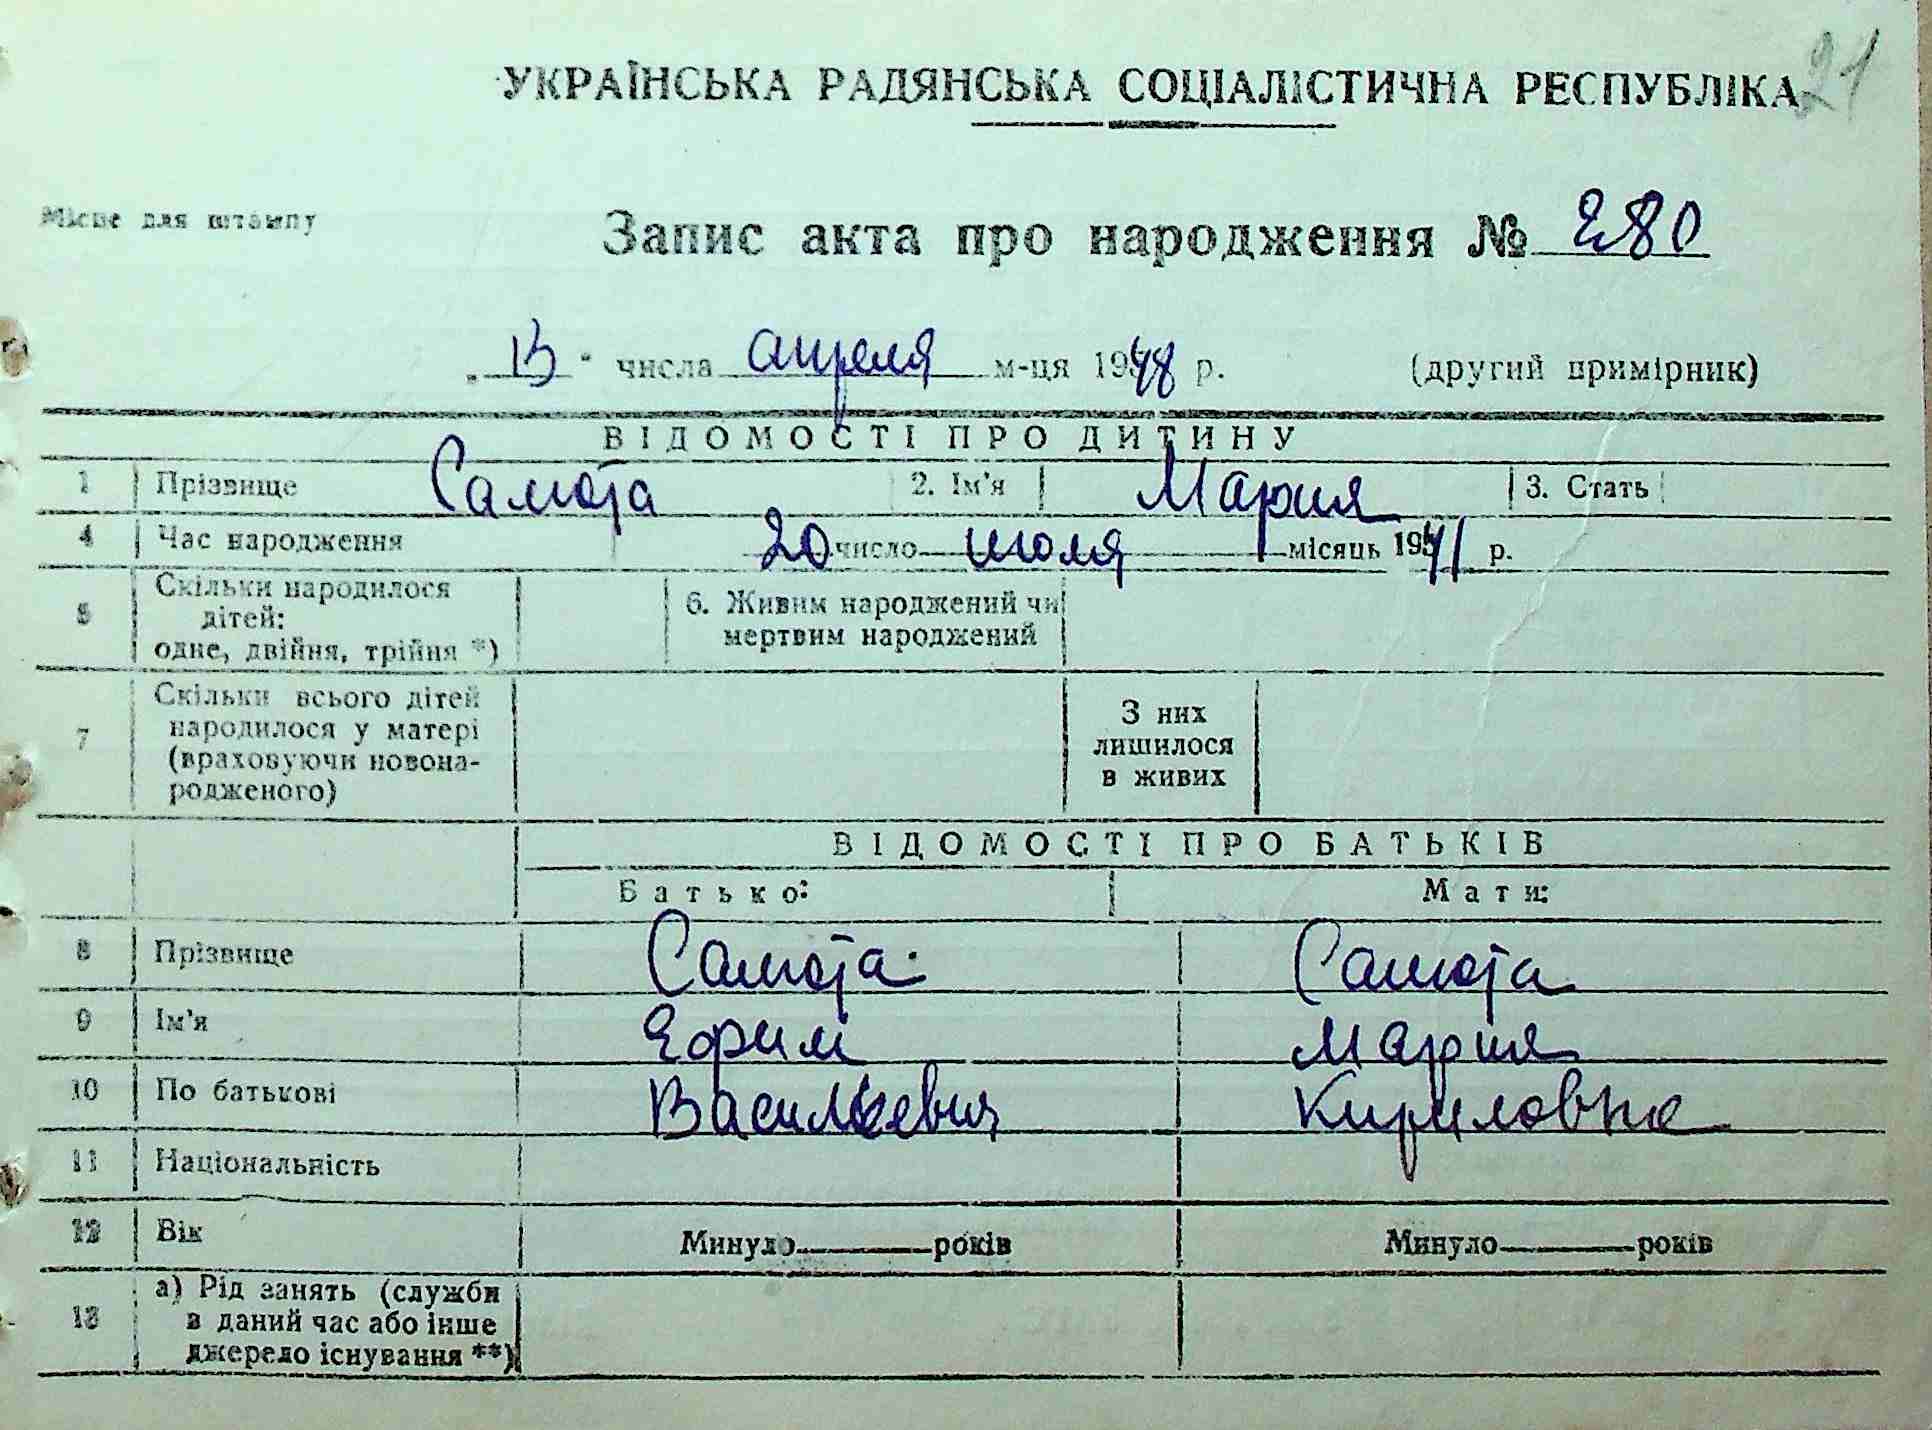 21
УКРАЇНСЬКА РАДЯНСЬКА СОЦІАЛІСТИЧНА РЕСПУБЛІКА
Місце для штампу
Запис акта про народження № 280
„13“ числа апреля м-ця 1948 р. (другий примірник)
ВІДОМОСТІ ПРО ДИТИНУ
1 Прізвище Самота 2. Ім'я Мария 3. Стать
4 Час народження 20 число июля місяць 1941 р.
5 Скільки народилося дітей: одне, двійня, трійня *) 6. Живим народжений чи мертвим народжений
7 Скільки всього дітей народилося у матері (враховуючи новонародженого) З них лишилося в живих
ВІДОМОСТІ ПРО БАТЬКІВ
Батько: Мати:
8 Прізвище Самота Самота
9 Ім'я Ефим Мария
10 По батькові Василиевич Кириловна
11 Національність
12 Вік Минуло ______ років Минуло ______ років
13 а) Рід занять (служби в даний час або інше джерело існування **)